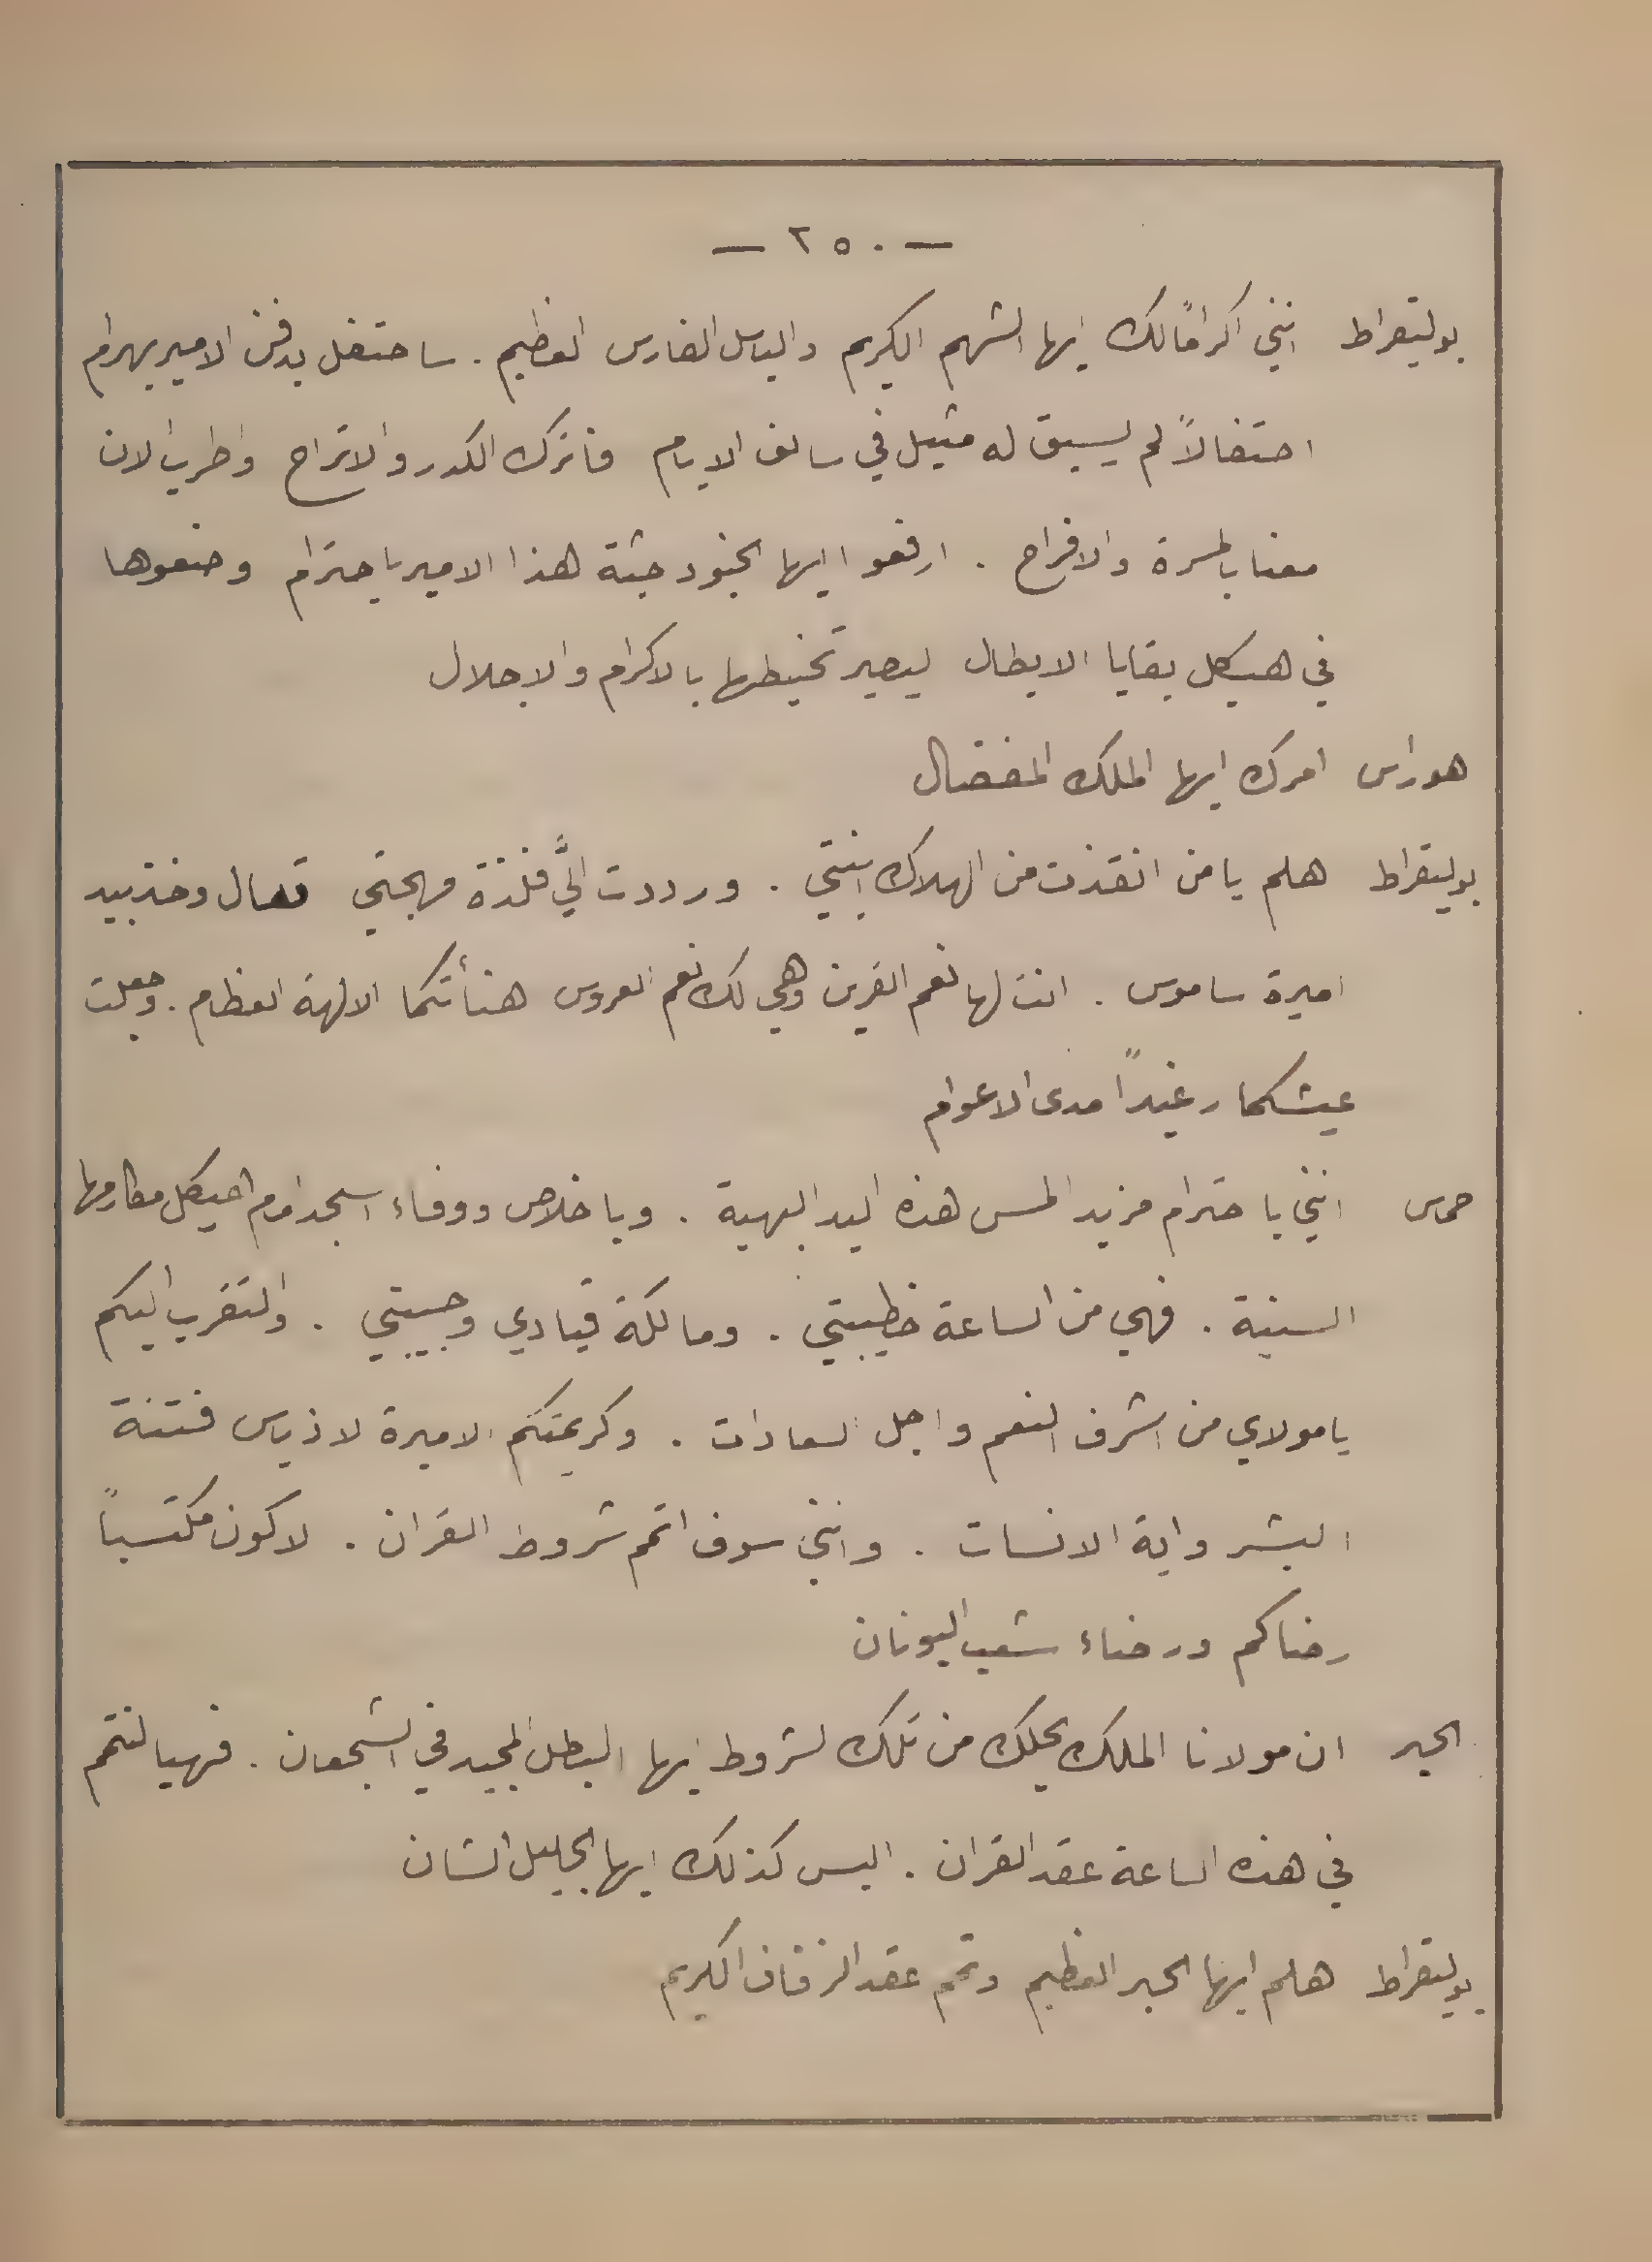 — ٢٥٠ —
بوليتقراط انني اكراماً لك ايها الشهم الكريم والباسل الفارس العظيم . ساحتفل بدفن الامير بهرام
احتفالاً لم يسبق له مثيل في سالف الايام فاترك الكدر والاتراح واطرب الان
معنا بالمسرة والافراح . ارفعوا ايها الجنود جثة هذا الامير باحترام وضعوها
في هيكل بقايا الابطال ليصير تحنيطها بالاكرام والاجلال
هوراس امرك ايها الملك المفضال
بوليتقراط هلم يا من انقذت من الهلاك ابنتي . ورددت اليَّ فلذة مهجتي تعال وخذ بيد
اميرة ساموس . انت لها نعم القرين وهي لك نعم العروس هنأتكما الالهة العظام . وجعلت
عيشكما رغيداً مدى الاعوام
حمس انني باحترام مزيد المس هذه اليد البهية . وباخلاص ووفاء اسجد امام هيكل مكارمها
السنية . فهي من الساعة خطيبتي . ومالكة قيادي وحبيبتي . والتقرب اليكم
يا مولاي من اشرف النعم واجل السعادات . وكريمتكم الاميرة لاذياس فتنة
البشر واية الانسات . وانني سوف اتمم شروط القران . لاكون مكتسباً
رضاكم ورضاء شعب اليونان
الحبر ان مولانا الملك يحلك من تلك الشروط ايها البطل المجيد في الشجعان . فهيا لنتمم
في هذه الساعة عقد القران . اليس كذلك ايها الجليل الشان
بوليتقراط هلم ايها الحبر العظيم وتمم عقد الزفاف الكريم